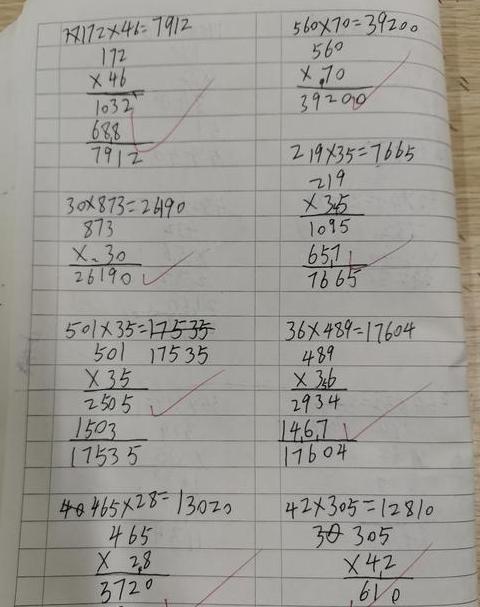 172×46=7912
172
×46
1032
688
7912
30×873=26190
873
×30
26190
501×35=17535
501 17535
×35
2505
1503
17535
40 465×28=13020
465
×28
3720
560×70=39200
560
×70
39200
219×35=7665
219
×35
1095
657
7665
36×489=17604
489
×36
2934
1467
17604
42×305=12810
30 305
×42
610